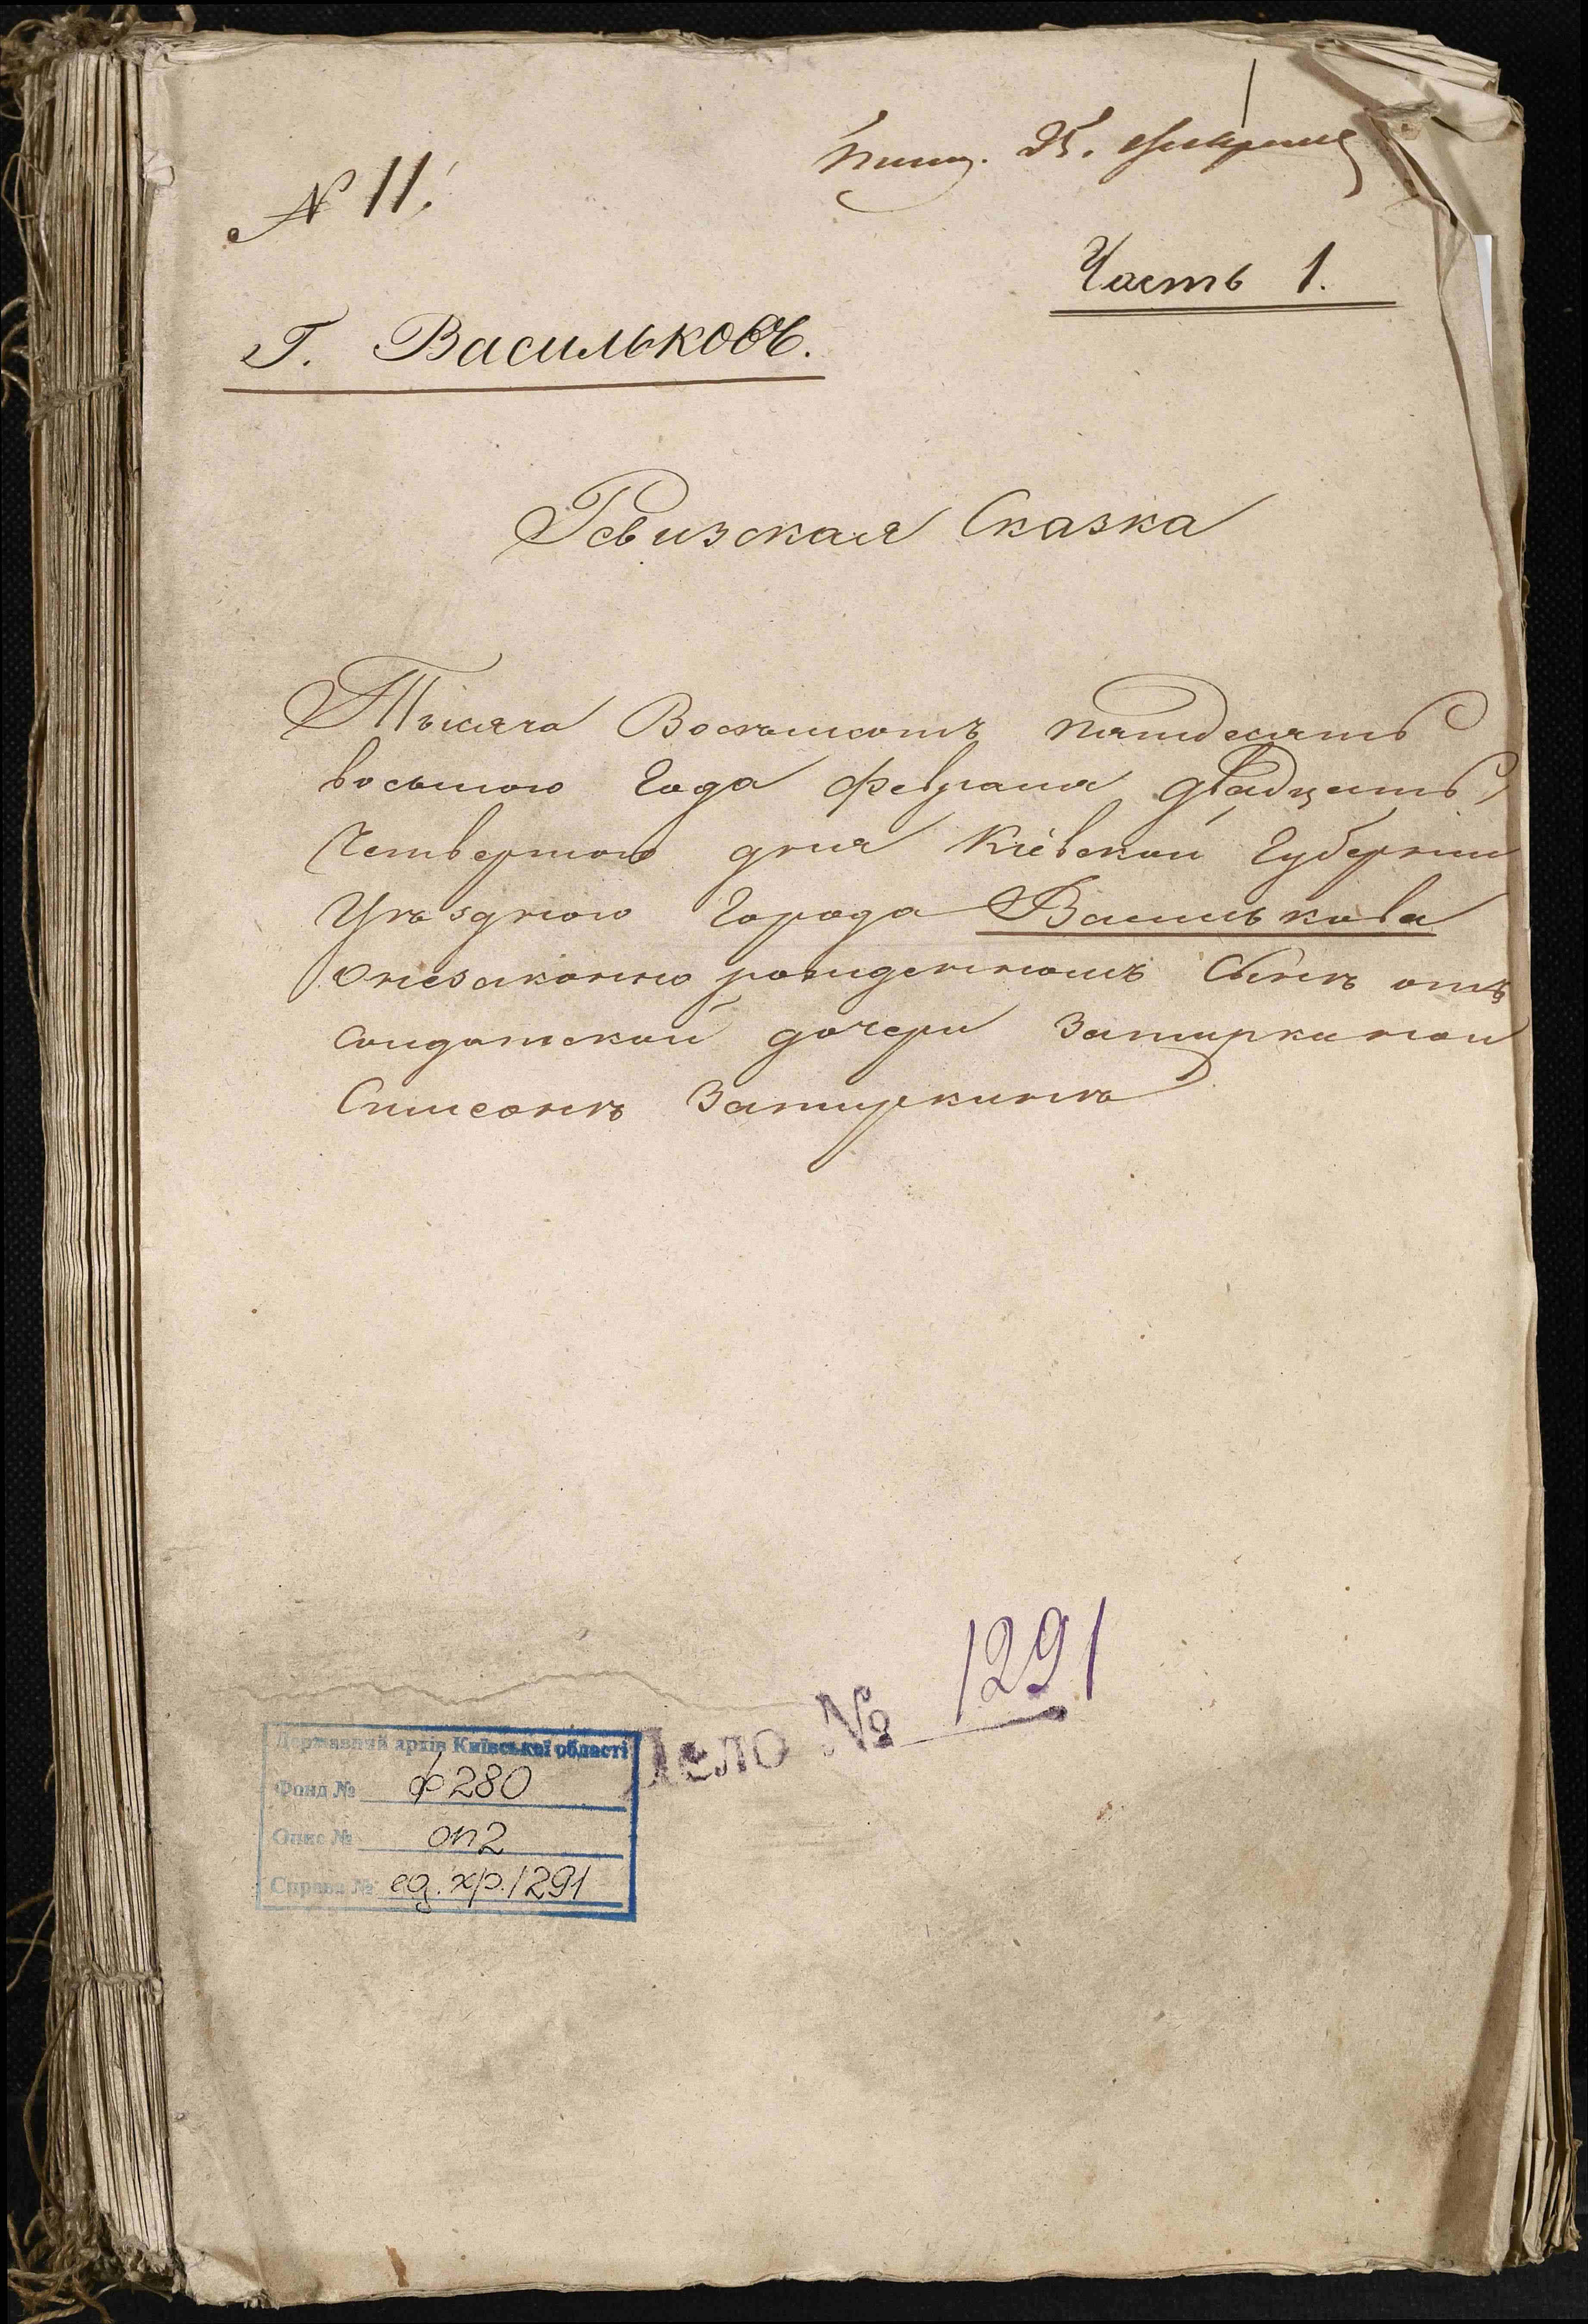 № 11.
25. февраля
Часть 1.
Г. Васильковъ.
Ревизская Сказка
Тысяча Восемьсотъ пятидесятъ
восьмого Года февраля двадцать
Четвертого дня Кіевской Губерніи
Уѣзднаго Города Василькова
О незаконно рожденномъ Сынѣ отъ
Солдатской дочери
Державний архів Київської області
Фонд № ф 280
Опис № оп 2
Справа № ед. хр. 1291
Дело № 1291